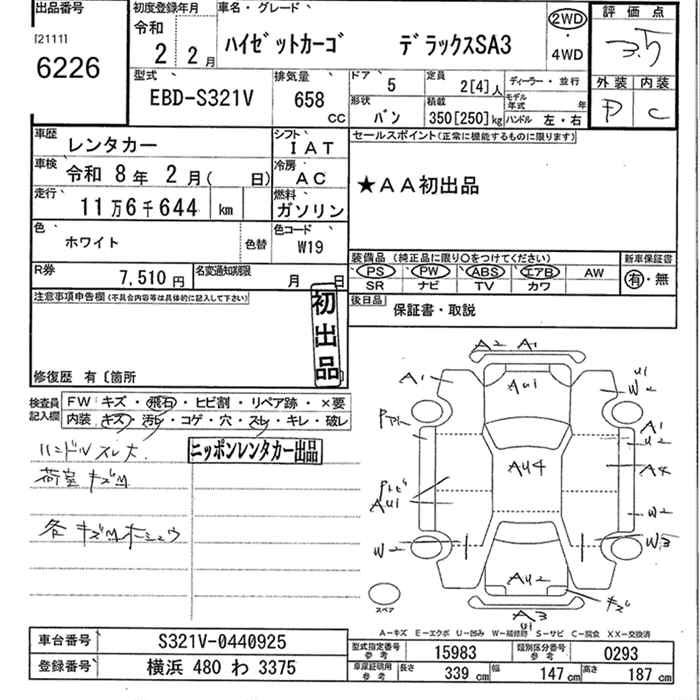 出品番号
[2111]
6226
初度登録年月
令和
2 2 月
車名・グレード
ハイゼットカーゴ デラックスSA3
2WD
・
4WD
評価点
3.5
外装 内装
D C
型式
EBD-S321V
排気量
658
CC
ドア 5
定員 2[4]人
ディーラー・並行
形状 バン
積載 350[250]kg
モデル年式 年
ハンドル 左・右
車歴 レンタカー
シフト IAT
車検 令和 8年 2月( 日)
冷房 AC
走行 11万6千644 km
燃料 ガソリン
色 ホワイト
色替
色コード W19
R券 7,510円
名変通知期限 月 日
セールスポイント(正常に機能するものに限ります)
★AA初出品
装備品 (純正品に限り○をつけてください)
PS PW ABS エアB AW
SR ナビ TV カワ
新車保証書
有・無
後日品 保証書・取説
注意事項申告欄(不具合内容等は具体的に記入して下さい)
初出品
修復歴 有〔箇所 〕
検査員記入欄
FW キズ・飛石・ヒビ割・リペア跡・×要
内装 キズ・汚れ・コゲ・穴・スレ・キレ・破レ
ハンドルスレ大
ニッポンレンタカー出品
荷室キズM
各キズM
A2 A1
A1
AU1
U1
W2
A1
U2
AU4
A4
AU1
W2
W2
W3
AU2
キズ
A3
U1
スペア
A-キズ E-エクボ U-凹み W-補修跡 S-サビ C-腐食 XX-交換済
車台番号 S321V-0440925
登録番号 横浜 480 わ 3375
型式指定番号 参考 15983
類別区分番号 参考 0293
車庫証明用 参考 長さ 339 cm 幅 147 cm 高さ 187 cm